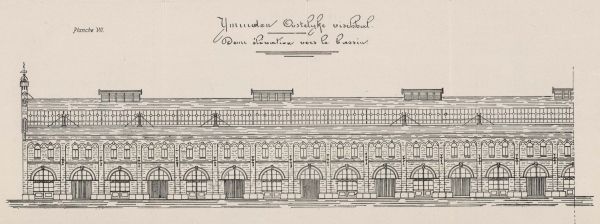 Planche VII.
Ymuiden Oostelijke vischhal.
Demi élévation vers le bassin.